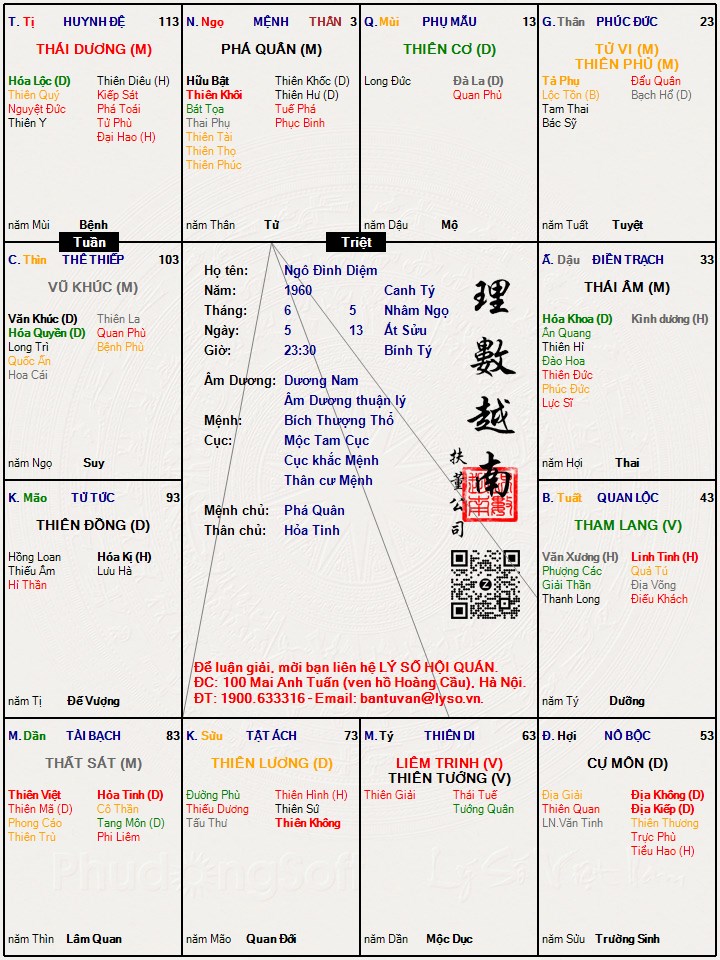 T. Tị HUYNH ĐỆ 113
THÁI DƯƠNG (M)
Hóa Lộc (D) Thiên Diêu (H)
Thiên Quý Kiếp Sát
Nguyệt Đức Phá Toái
Thiên Y Tử Phù
Đại Hao (H)
năm Mùi Bệnh
N. Ngọ MỆNH THÂN 3
PHÁ QUÂN (M)
Hữu Bật Thiên Khốc (D)
Thiên Khôi Thiên Hư (D)
Bát Tọa Tuế Phá
Thai Phụ Phục Binh
Thiên Tài
Thiên Thọ
Thiên Phúc
năm Thân Tử
Q. Mùi PHỤ MẪU 13
THIÊN CƠ (D)
Long Đức Đà La (D)
Quan Phủ
năm Dậu Mộ
G. Thân PHÚC ĐỨC 23
TỬ VI (M)
THIÊN PHỦ (M)
Tả Phụ Đẩu Quân
Lộc Tồn (B) Bạch Hổ (D)
Tam Thai
Bác Sỹ
năm Tuất Tuyệt
Tuần
Triệt
C. Thìn THÊ THIẾP 103
VŨ KHÚC (M)
Văn Khúc (D) Thiên La
Hóa Quyền (D) Quan Phù
Long Trì Bệnh Phù
Quốc Ấn
Hoa Cái
năm Ngọ Suy
Họ tên: Ngô Đình Diệm
Năm: 1960 Canh Tý
Tháng: 6 5 Nhâm Ngọ
Ngày: 5 13 Ất Sửu
Giờ: 23:30 Bính Tý
Âm Dương: Dương Nam
Âm Dương thuận lý
Mệnh: Bích Thượng Thổ
Cục: Mộc Tam Cục
Cục khắc Mệnh
Thân cư Mệnh
Mệnh chủ: Phá Quân
Thân chủ: Hỏa Tinh
理數越南
扶董公司
Để luận giải, mời bạn liên hệ LÝ SỐ HỘI QUÁN.
ĐC: 100 Mai Anh Tuấn (ven hồ Hoàng Cầu), Hà Nội.
ĐT: 1900.633316 - Email: bantuvan@lyso.vn.
Ấ. Dậu ĐIỀN TRẠCH 33
THÁI ÂM (M)
Hóa Khoa (D) Kình dương (H)
Ân Quang
Thiên Hỉ
Đào Hoa
Thiên Đức
Phúc Đức
Lực Sĩ
năm Hợi Thai
K. Mão TỬ TỨC 93
THIÊN ĐỒNG (D)
Hồng Loan Hóa Kị (H)
Thiếu Âm Lưu Hà
Hỉ Thần
năm Tị Đế Vượng
B. Tuất QUAN LỘC 43
THAM LANG (V)
Văn Xương (H) Linh Tinh (H)
Phượng Các Quả Tú
Giải Thần Địa Võng
Thanh Long Điếu Khách
năm Tý Dưỡng
M. Dần TÀI BẠCH 83
THẤT SÁT (M)
Thiên Việt Hỏa Tinh (D)
Thiên Mã (D) Cô Thần
Phong Cáo Tang Môn (D)
Thiên Trù Phi Liêm
năm Thìn Lâm Quan
K. Sửu TẬT ÁCH 73
THIÊN LƯƠNG (D)
Đường Phù Thiên Hình (H)
Thiếu Dương Thiên Sứ
Tấu Thư Thiên Không
năm Mão Quan Đới
M. Tý THIÊN DI 63
LIÊM TRINH (V)
THIÊN TƯỚNG (V)
Thiên Giải Thái Tuế
Tướng Quân
năm Dần Mộc Dục
Đ. Hợi NÔ BỘC 53
CỰ MÔN (D)
Địa Giải Địa Không (D)
Thiên Quan Địa Kiếp (D)
LN.Văn Tinh Thiên Thương
Trực Phù
Tiểu Hao (H)
năm Sửu Trường Sinh